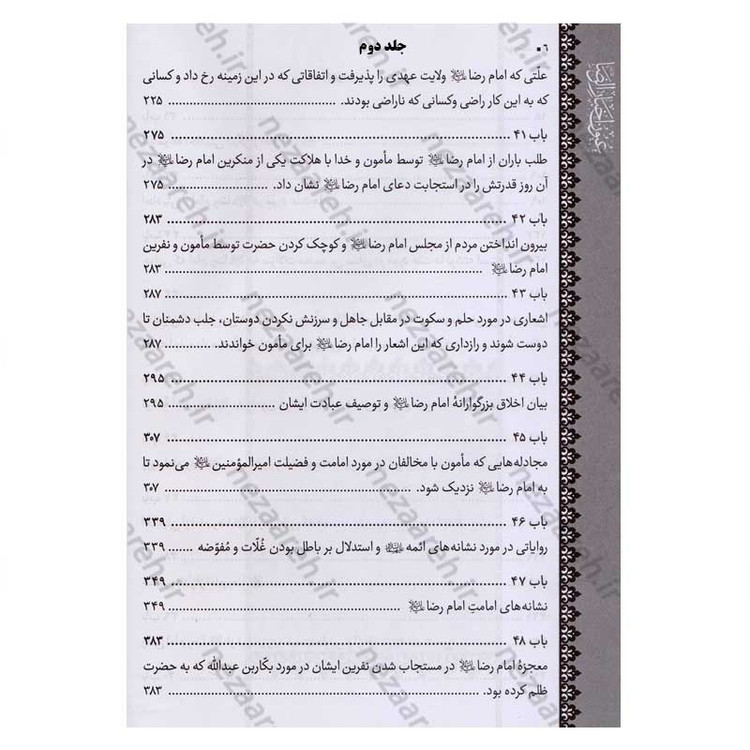 ۶ ■
جلد دوم
عیون اخبار الرضا
علّتی که امام رضا علیه‌السلام ولایت عهدی را پذیرفت و اتفاقاتی که در این زمینه رخ داد و کسانی
که به این کار راضی وکسانی که ناراضی بودند. .......... ۲۲۵
باب ۴۱ .......... ۲۷۵
طلب باران از امام رضا علیه‌السلام توسط مأمون و خدا با هلاکت یکی از منکرین امام رضا علیه‌السلام در
آن روز قدرتش را در استجابت دعای امام رضا علیه‌السلام نشان داد. .......... ۲۷۵
باب ۴۲ .......... ۲۸۳
بیرون انداختن مردم از مجلس امام رضا علیه‌السلام و کوچک کردن حضرت توسط مأمون و نفرین
امام رضا علیه‌السلام .......... ۲۸۳
باب ۴۳ .......... ۲۸۷
اشعاری در مورد حلم و سکوت در مقابل جاهل و سرزنش نکردن دوستان، جلب دشمنان تا
دوست شوند و رازداری که این اشعار را امام رضا علیه‌السلام برای مأمون خواندند. .......... ۲۸۷
باب ۴۴ .......... ۲۹۵
بیان اخلاق بزرگوارانهٔ امام رضا علیه‌السلام و توصیف عبادت ایشان .......... ۲۹۵
باب ۴۵ .......... ۳۰۷
مجادله‌هایی که مأمون با مخالفان در مورد امامت و فضیلت امیرالمؤمنین علیه‌السلام می‌نمود تا
به امام رضا علیه‌السلام نزدیک شود. .......... ۳۰۷
باب ۴۶ .......... ۳۳۹
روایاتی در مورد نشانه‌های ائمه علیهم‌السلام و استدلال بر باطل بودن غُلّات و مُفوّضه ....... ۳۳۹
باب ۴۷ .......... ۳۴۹
نشانه‌های امامتِ امام رضا علیه‌السلام .......... ۳۴۹
باب ۴۸ .......... ۳۸۳
معجزهٔ امام رضا علیه‌السلام در مستجاب شدن نفرین ایشان در مورد بکّاربن عبدالله که به حضرت
ظلم کرده بود. .......... ۳۸۳
nezaareh.ir